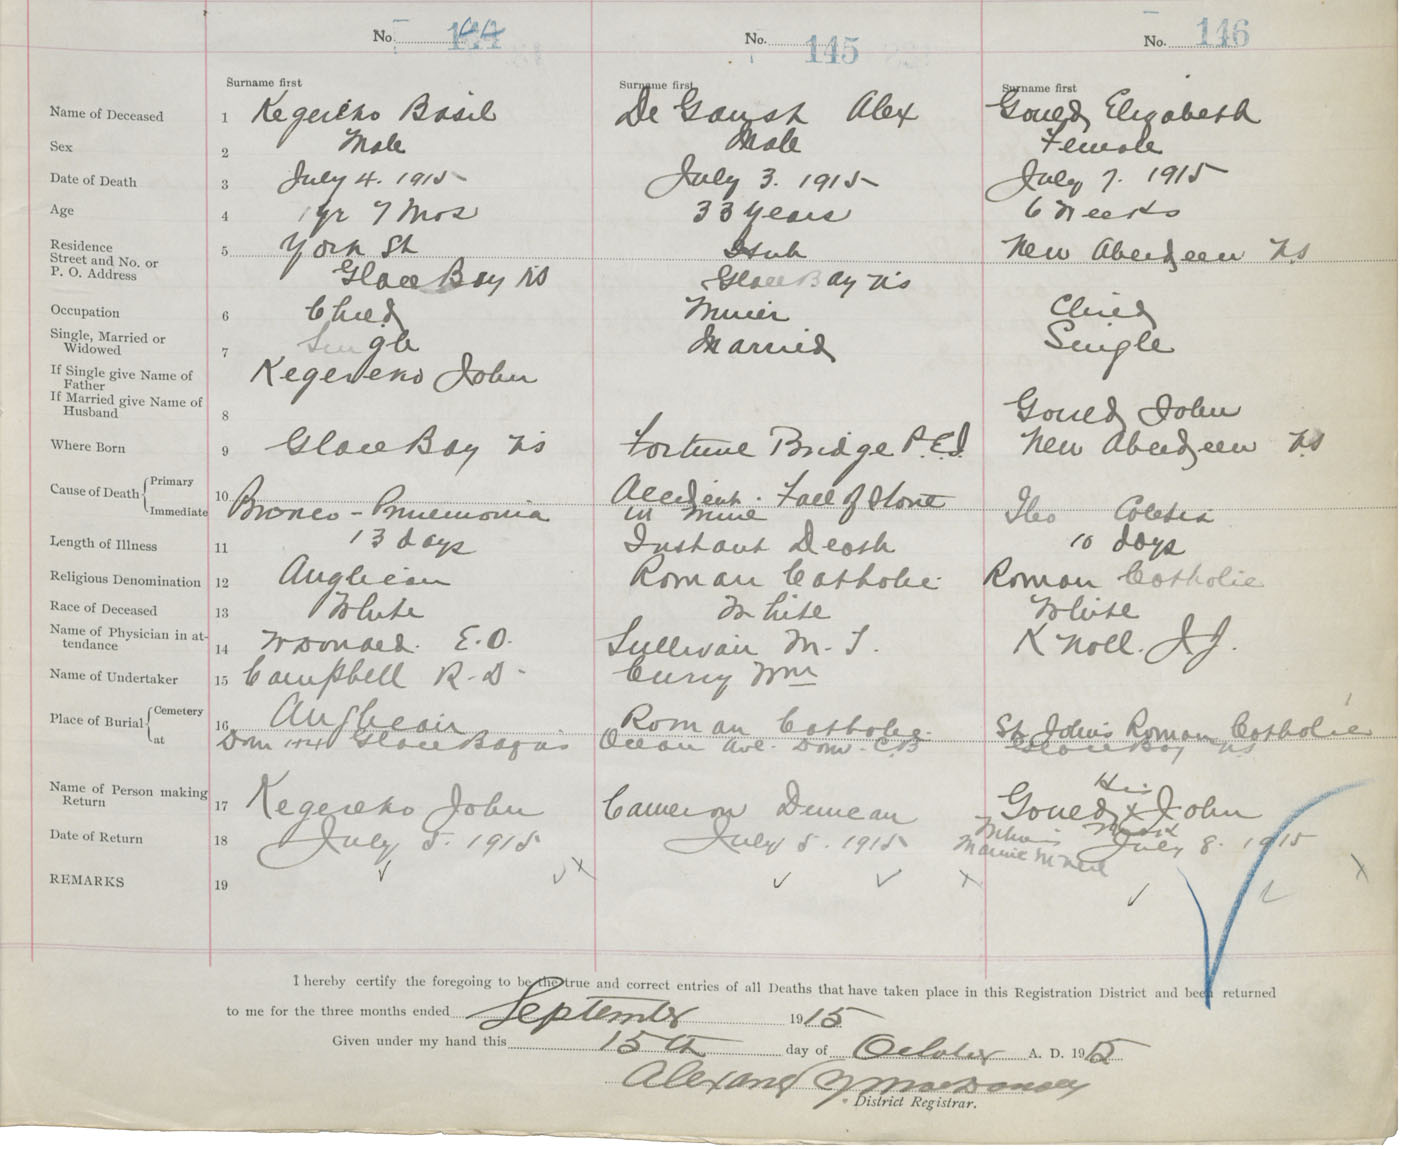 No. 144
No. 145
No. 146
Surname first
Surname first
Surname first
Name of Deceased 1 Kegereko Basil De Gaust Alex Gouldz Elizabeth
Sex 2 Male Male Female
Date of Death 3 July 4. 1915 July 3. 1915 July 7. 1915
Age 4 1 yr 7 Mos 33 years 6 Weeks
Residence
Street and No. or
P. O. Address
5 York St New Aberdeen N.S
Glace Bay NS Glace Bay NS
Occupation 6 Child Miner Child
Single, Married or
Widowed
7 Single Married Single
If Single give Name of
Father
Kegereko John
If Married give Name of
Husband
8 John
Where Born 9 Glace Bay NS Fortune Bridge P.E.I. New Aberdeen N.S
Cause of Death Primary Accident. Fall of Stone
Immediate 10 Bronco - Pnuemonia in Mine Ileo Coletis
Length of Illness 11 13 days Instant Death 10 days
Religious Denomination 12 Anglican Roman Catholic Roman Catholic
Race of Deceased 13 White White White
Name of Physician in at-
tendance
14 E. O. Sullivan M. T. Knoll. J J.
Name of Undertaker 15 Campbell R. D. Curry Wm
Place of Burial Cemetery 16 Anglican Roman Catholic St Johns Roman Catholic
at Dom No 4 Glace Bay NS Ocean Ave. Dom. C.B Glace Bay NS
Name of Person making
Return
17 Kegereko John Cameron Duncan His
X John
Mark
Date of Return 18 July 5. 1915 July 5. 1915 July 8. 1915
REMARKS 19
I hereby certify the foregoing to be the true and correct entries of all Deaths that have taken place in this Registration District and been returned
to me for the three months ended September 1915
Given under my hand this 15th day of October A. D. 1915
Alexander MacDonald
District Registrar.